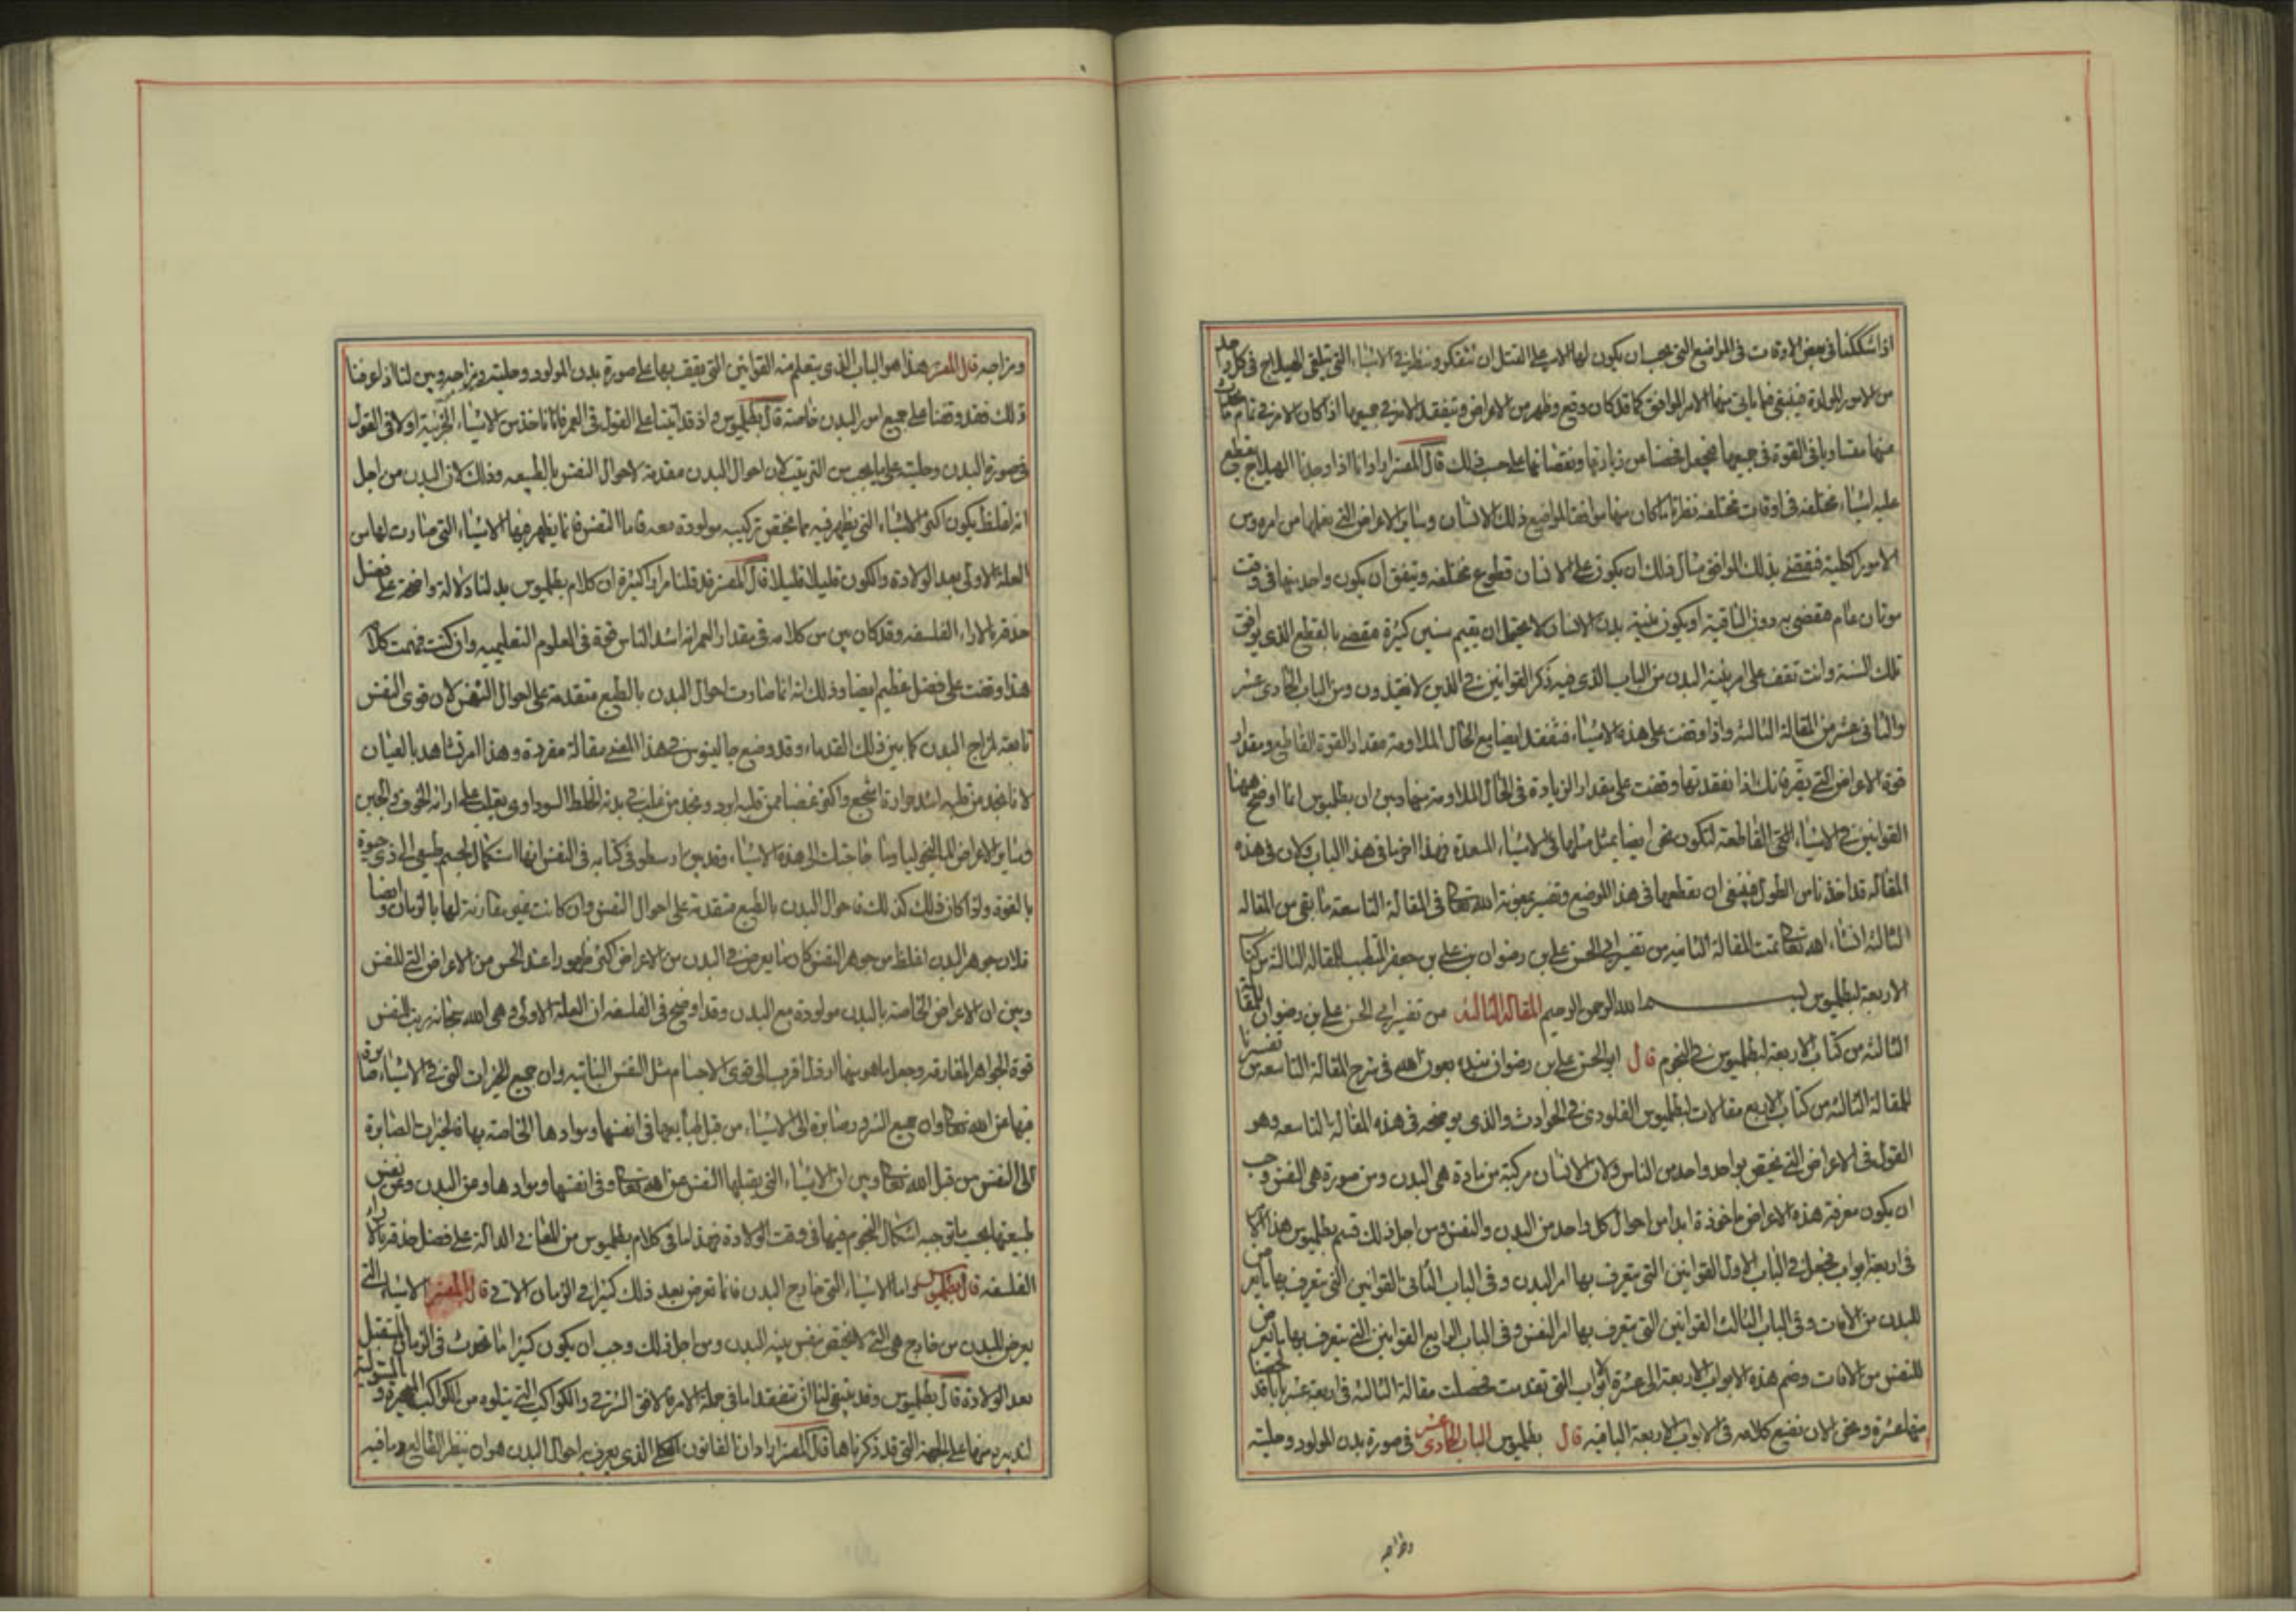 اذا شككنا فى بعض الاوقات فى المواضع التى يجب ان يكون لها الادب على القتل ان نتفكر وننظر فى الاشياء التى تلقى الهيلاج فى كل واحد
من الامور المولدة فينبغى فما ياتى منها الامر الموافق كما قد كان وقع وظهر من الاعراض ونتفقد الامر فى جميعها اذا كان الامر فى تمام
منها متساويا فى القوة فى جميعها فنجعل فحصنا من زيادتها ونقصانها على حسب ذلك قال المفسر اراد انا اذا وجدنا الهيلاج يقطع
عليه اشياء مختلفه فى اوقات مختلفه نظرنا ما كان منها موافقا لمواضع ذلك الانسان وساير الاعراض التى نعلمها من امره ومن
الامور الكلية فنقضى بذلك الموافق مثال ذلك ان يكون على الانسان قطوع مختلفه ويتفق ان يكون واحد منها فى وقت
موتان عام فنقضى به دون الباقية او يكون بنية بدن الانسان لا يحتمل ان يقيم سنين كثيرة فنقضى بالقطع الذى يوافق
تلك السنة وانت تقف على امر بنية البدن من الباب الذى فيه ذكر القوانين فى الذين لا يغتذون ومن الباب الحادى عشر
والثانى عشر من المقالة الثالثه واذا وقفت على هذه الاشياء فتفقد ايضا مع الحال الملاومة مقدار القوة القاطع ومقدار
قوة الاعراض التى فانك اذا تفقدتها وقفت على مقدار الزيادة فى الحال الملاومة منها وبين ان بطلميوس انما اوضح ههنا
القوانين فى الاشياء التى القاطعة لتكون نحن ايضا نمثل مثلها فى الاشياء المسعدة فهذا اخر ما فى هذا الباب ولان فى هذه
المقالة قد اخذنا من الطول فينبغى ان نقطعها فى هذا الموضع ونفسر بمعونة الله تعالى فى المقالة التاسعة ما بقى من المقاله
الثالثة انشاء الله تعالى تمت المقالة الثامنة من تفسير ابى الحسن على بن رضوان بن على بن جعفر المتطبب للمقاله الثالثة من كتاب
الاربعة لبطلميوس بسم الله الرحمن الرحيم المقالة الثالثه من تفسير ابى الحسن على بن رضوان للمقالة
الثالثه من كتاب الاربعة لبطلميوس فى النجوم قال ابو الحسن على بن رضوان نبتدى بعون الله فى شرح المقالة التاسعة من تفسيرنا
للمقالة الثالثه من كتاب الاربع مقالات لبطلميوس القلوذى فى الحوادث والذى يوضحه فى هذه المقالة التاسعه وهو
القول فى الاعراض التى تختص بواحد واحد من الناس ولان الانسان مركبة من مادة هى البدن ومن صورة هى النفس وجب
ان يكون معرفة هذه الاعراض ماخوذة ابدا من احوال كل واحد من البدن والنفس ومن اجل ذلك قسم بطلميوس هذا
فى اربعة ابواب فجعل فى الباب الاول القوانين التى يتعرف بها امر البدن وفى الباب الثانى القوانين التى يتعرف بها ما يعرض
للبدن من الافات وفى الباب الثالث القوانين التى يتعرف بها امر النفس وفى الباب الرابع القوانين التى يتعرف بها ما يعرض
للنفس من الافات وضم هذه الابواب الاربعة الى عشرة ابواب التى تقدمت فحصلت مقالة الثالثة فى اربعة عشر بابا قد لخصنا
منها عشرة ونحن الان نضع كلامه فى الابواب الاربعة الباقيه قال بطلميوس الباب الحادى عشر فى صورة بدن المولود وحليته
ومزاجه
ومزاجه قال المفسر هذا هو الباب الذى يتعلم منه القوانين التى يقف بها على صورة بدن المولود وحليته ومزاجه وبين لنا اذا عرفنا
ذلك فقد وقفنا على جميع امور البدن خاصة قال بطلميوس واذ قد اتينا على القول فى العمر فانا ناخذ من الاشياء الجزئية اولا فى القول
فى صورة البدن وحليته على ما يجب من الترتيب لان احوال البدن مقدمة لاحوال النفس بالطبيعه وذلك لان البدن من اجل
انه اغلظ يكون اكثر الاشياء التى يظهر فيه مما يختص تركيبه مولودة معه فاما النفس فانما يظهر فيها الاشياء التى صارت لها من
العلة الاولى بعد الولادة والكون قليلا قليلا قال المفسر قد قلنا مرارا كثيرة ان كلام بطلميوس يدلنا دلالة واضحة على فضل
حذقه بالاراء الفلسفه وقد كان بين من كلامه فى مقدار العمر انه اشد الناس فحة فى العلوم التعليميه وان كنت فهمت كلامه
هذا وقفت على فضل عظيم ايضا وذلك انه انما صارت احوال البدن بالطبع متقدمة على احوال النفس لان قوى النفس
تابعة لمزاج البدن كما بين ذلك القدماء وقد وضع جالينوس فى هذا المعنى مقالة مفردة وهذا امر تشاهد بالعيان
لانا نجد من قلبه اشد حرارة اشجع واكثر غضبا ممن قلبه ابرد ونجد من غلب فى بدنه الخلط السوداوى يغلب على ارائه الخوف والجبن
وساير الاعراض الماليخوليا وما حاجتك الى هذه الاشياء وقد بين ارسطو فى كتابه فى النفس انها استكمال لجسم طبيعى الى ذى حيوة
بالقوة ولو كان ذلك كذلك فاحوال البدن بالطبع متقدمة على احوال النفس وان كانت غير مقارنة لها بالزمان وايضا
فلان جوهر البدن اغلظ من جوهر النفس كان ما يعرض فى البدن من الاعراض اكثر ظهورا عند الحس من الاعراض التى للنفس
وبين ان الاعراض الخاصة بالبدن مولودة مع البدن وقد اوضح فى الفلسفه ان العلة الاولى وهى الله سبحانه النفس
قوة الجواهر المفارقه وجعل ما هو منها ارذل اقرب الى قوى الاجسام مثل النفس النباتيه وان جميع الخيرات التى فى الاشياء صايرة
فيها عن الله تعالى وان جميع الشرور صايرة الى الاشياء من قبل فى انفسها وموادها الخاصة بها فالخيرات الصايرة
الى النفس من قبل الله تعالى وبين ان الاشياء التى يقبلها النفس عن الله تعالى وفى انفسها وموادها وعن البدن وعن نفس
طبيعتها بحسب ما توجبه اشكال النجوم فيها فى وقت الولادة فهذا ما فى كلام بطلميوس من المعانى الدالة على فضل حذقه بالاراء
الفلسفه قال بطلميوس واما الاشياء التى خارج البدن فانما تعرض بعد ذلك كثيرا فى الزمان الاتى قال المفسر الاشياء التى
يعرض للبدن من خارج هى التى لا تختص بنفس بنيه البدن ومن اجل ذلك وجب ان يكون كثيرا ما تحدث فى الزمان المستقبل
بعد الولادة قال بطلميوس وقد ينبغى لنا ان نتفقد اما فى جملة الامر فالافق الشرقى والكواكب التى يتلوه من الكواكب المتحيرة المتولية
لتدبيره منها على الجهة التى قد ذكرناها قال المفسر اراد ان القانون الكلى الذى يعرف به احوال البدن هو ان ينظر الطالع وما فيه